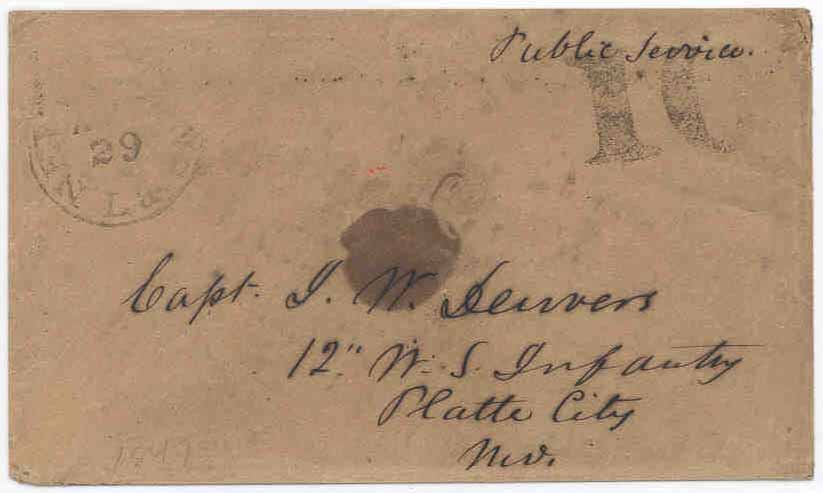 Public Service.
10
29
Capt. J. W. Denvers
12" U. S. Infantry
Platte City
Mo.
1847